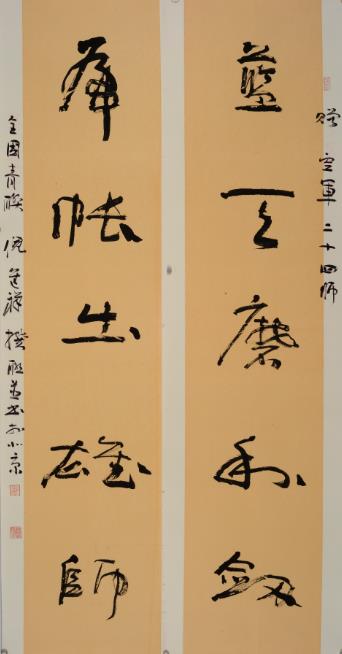 贈 空軍二十四師
藍天磨利劍
虎帳出雄師
全國青聯 倪進祥 撰聯並書於北京